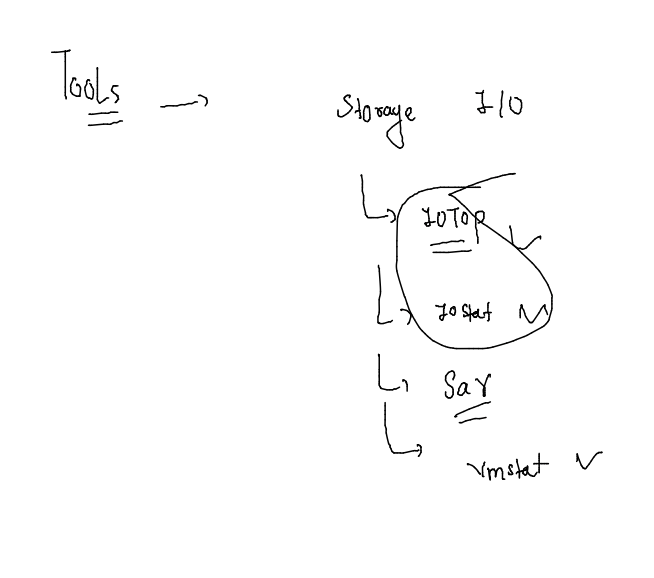 Tools → Storage I/O
IOTop
IOStat
Sar
vmstat